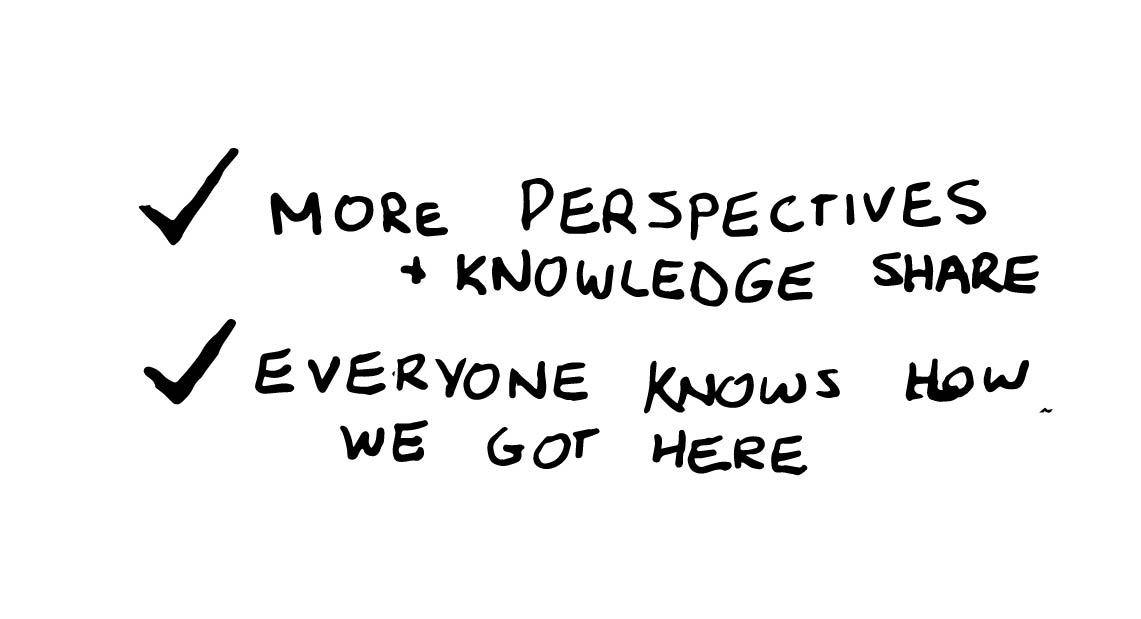 ✓ MORE PERSPECTIVES
+ KNOWLEDGE SHARE
✓ EVERYONE KNOWS HOW
WE GOT HERE